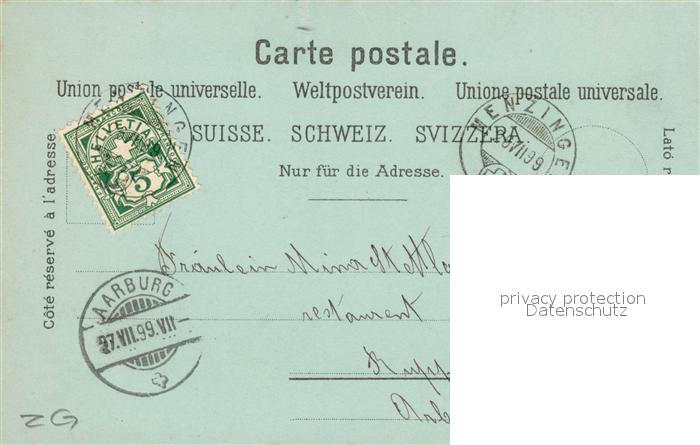 Carte postale.
Union postale universelle. Weltpostverein. Unione postale universale.
SUISSE. SCHWEIZ. SVIZZERA
Nur für die Adresse.
Côté réservé à l'adresse.
Lató
MENZINGE
HELVETIA
5
MENZINGE
VII 99
AARBURG
27.VII.99.VII
Fräulein Mina
restaurent
privacy protection
Datenschutz
ZG